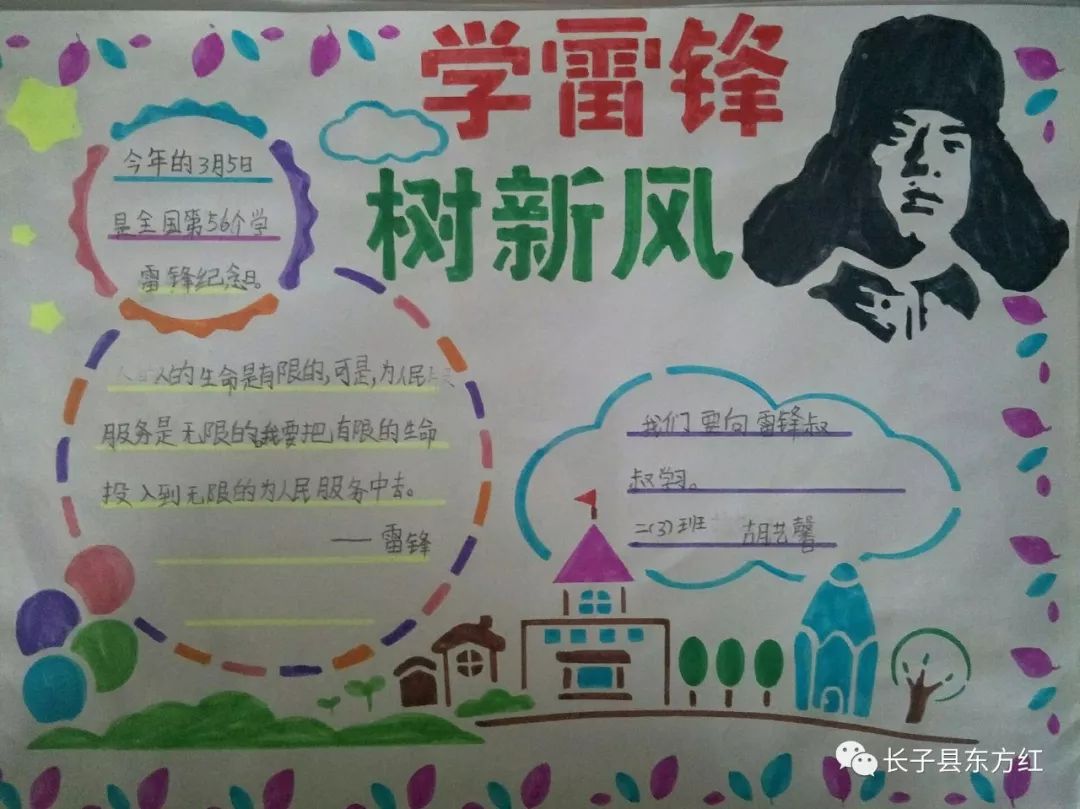 学雷锋
树新风
今年的3月5日
是全国第56个学
雷锋纪念日。
人的生命是有限的,可是,为人民
服务是无限的,我要把有限的生命
投入到无限的为人民服务中去。
——雷锋
我们要向雷锋叔
叔学习。
二(3)班 胡艺馨
长子县东方红